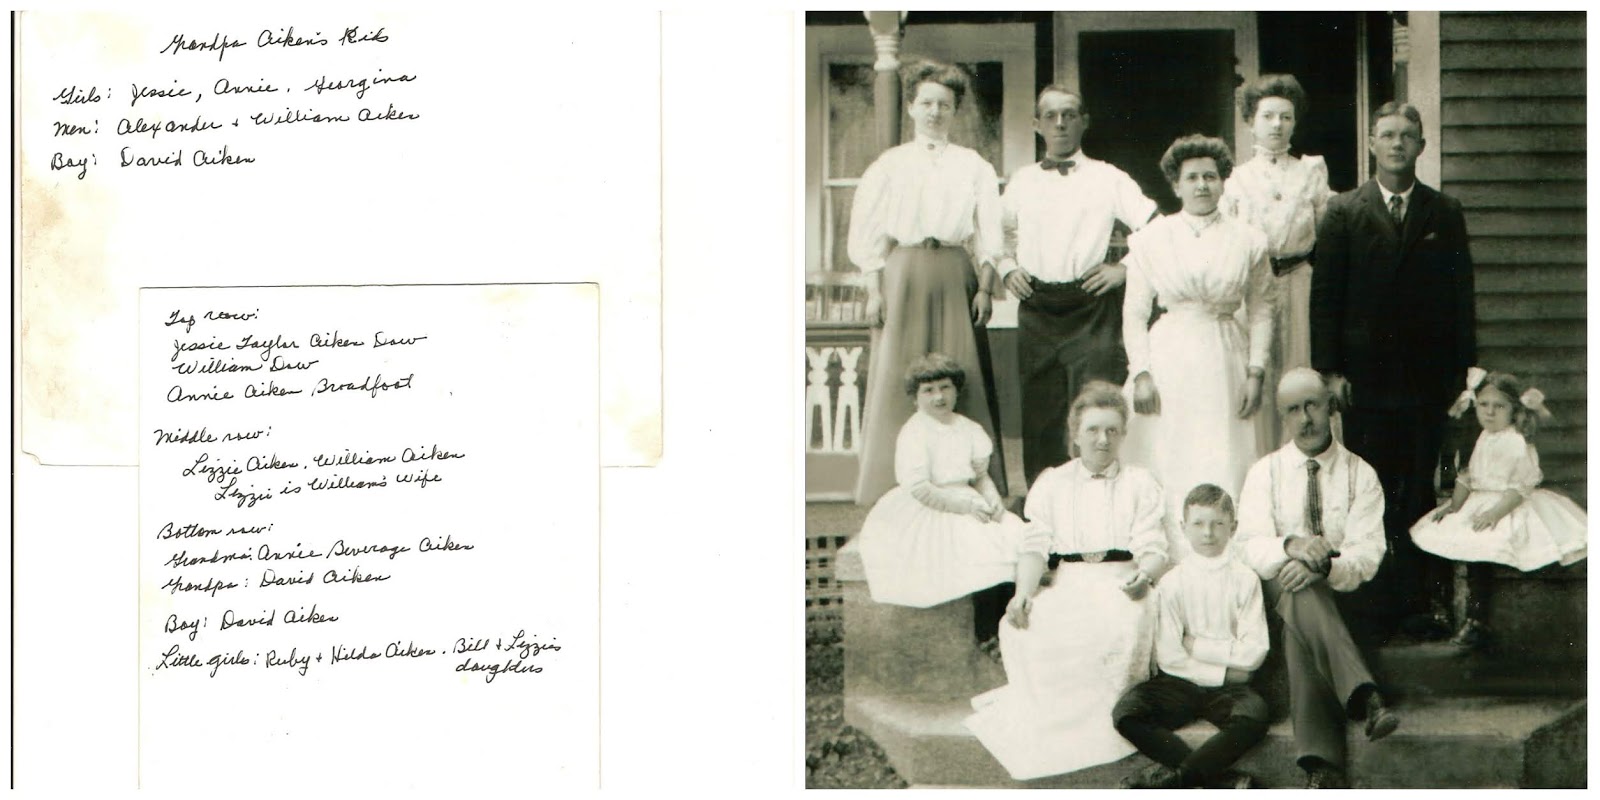 Grandpa Aiken's Kids
Girls: Jessie, Annie, Georgina
Men: Alexander + William Aiken
Boy: David Aiken
Top row:
Jessie Taylor Aiken Dow
William Dow
Annie Aiken Broadfoot
Middle row:
Lizzie Aiken, William Aiken
Lizzie is William's Wife
Bottom row:
Grandma: Annie Beverage Aiken
Grandpa: David Aiken
Boy: David Aiken
Little girls: Ruby + Hilda Aiken. Bill + Lizzie's
daughters